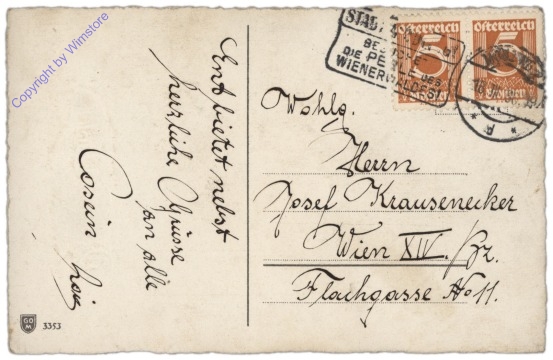 Copyright by Wimstore
Entbietet nebst
herzliche Grüsse
an alle
3353
Österreich
5
Österreich
5
STADT
DIE PE
WIENERWALDES!
Wohlg.
Herrn
Josef Krausenecker
Wien XIV. /Bz.
Flachgasse No 11.